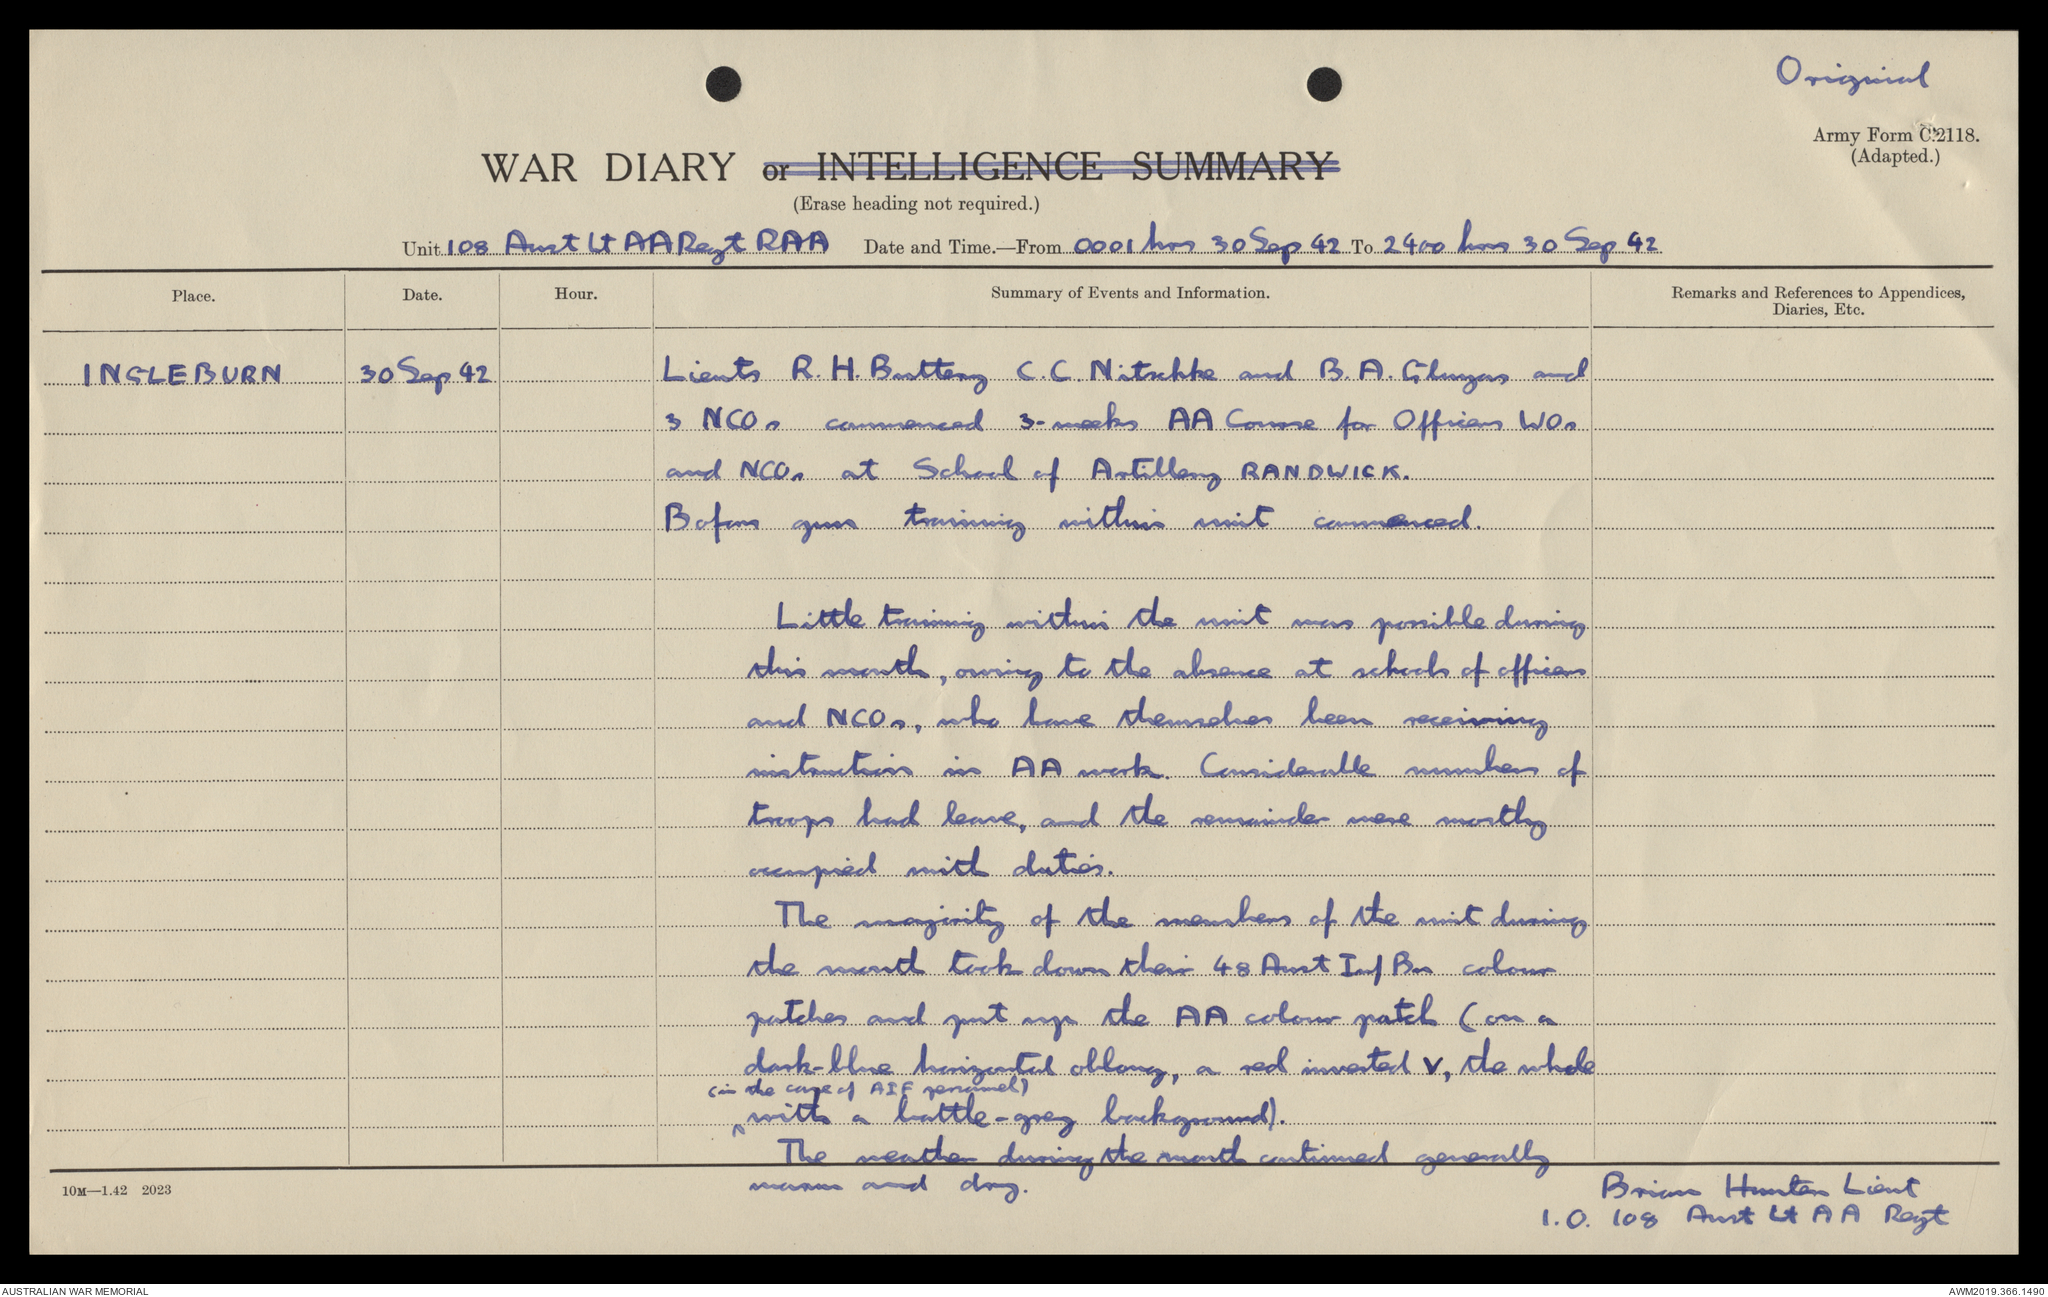 Original
Army Form C.2118.
(Adapted.)
WAR DIARY or INTELLIGENCE SUMMARY
(Erase heading not required.)
Unit 108 Aust Lt AA Regt RAA Date and Time.—From 0001 hrs 30 Sep 42 To 2400 hrs 30 Sep 42
Place. Date. Hour. Summary of Events and Information. Remarks and References to Appendices,
Diaries, Etc.
INGLEBURN 30 Sep 42 Lieuts R. H. Buttery C. C. Nitschke and B. A. and
3 NCOs commenced 3-weeks AA Course for Officers WOs
and NCOs at School of Artillery RANDWICK.
Bofors gun training within unit commenced.
Little training within the unit was possible during
this month, owing to the absence at schools of officers
and NCOs, who have themselves been receiving
instruction in AA work. Considerable numbers of
troops had leave, and the remainder were mostly
occupied with duties.
The majority of the members of the unit during
the month took down their 48 Aust Inf Bn colour
patches and put up the AA colour patch (on a
dark-blue horizontal oblong, a red inverted V, the whole
(in the case of AIF personnel)
with a battle-grey background).
The weather during the month continued generally
warm and dry.
10M—1.42 2023
Brian Hunter Lieut
I.O. 108 Aust Lt AA Regt
AUSTRALIAN WAR MEMORIAL
AWM2019.366.1490